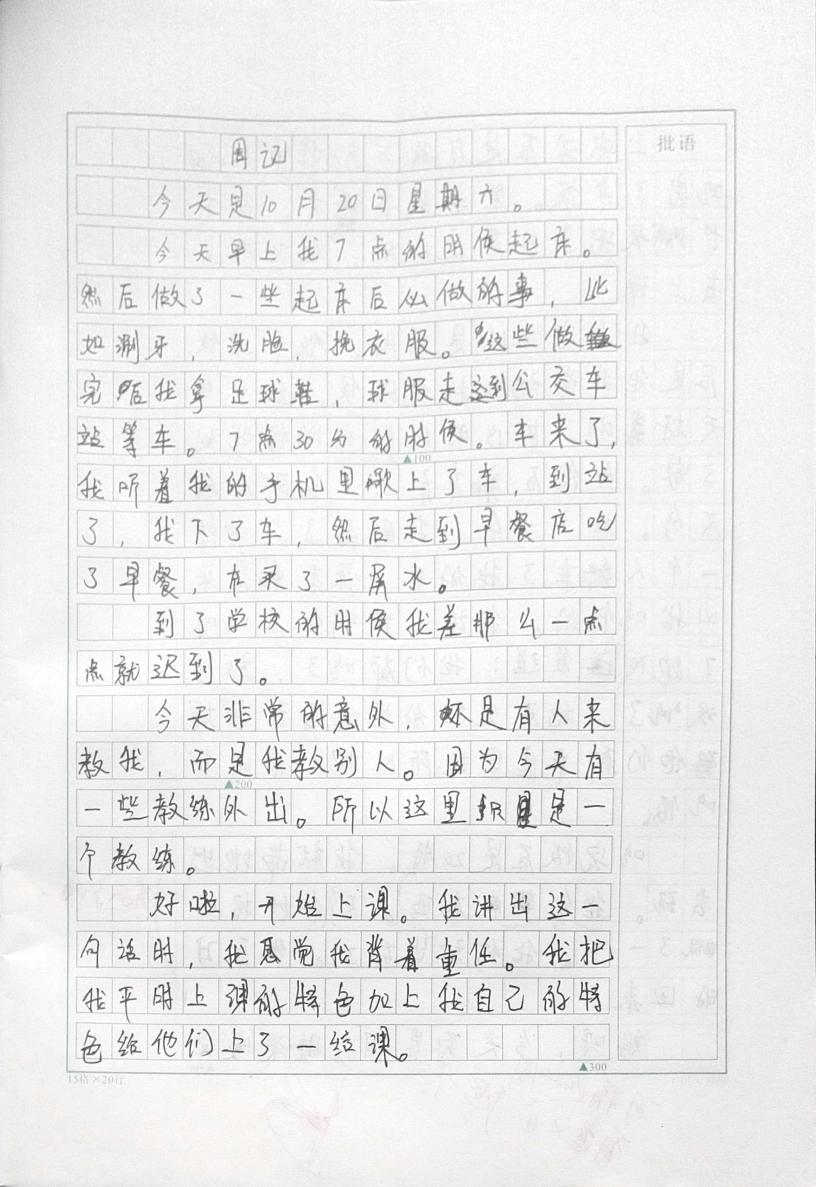 批语
周记
今天是10月20日星期六。
今天早上我7点的时候起床。
然后做了一些起床后必做的事，比
如涮牙，洗脸，挽衣服。这些做
完后我拿足球鞋，球服走到公交车
站等车。7点30分的时侯。车来了，
我听着我的手机里歌上了车，到站
了，我下了车，然后走到早餐店吃
了早餐，在买了一屏水。
到了学校的时侯我差那么一点
点就迟到了。
今天非常的意外，不是有人来
教我，而是我教别人。因为今天有
一些教练外出。所以这里我是一
个教练。
好啦，开始上课。我讲出这一
句话时，我感觉我背着重任。我把
我平时上课的特色加上我自己的特
色给他们上了一结课。
▲100
▲200
▲300
15格×20行